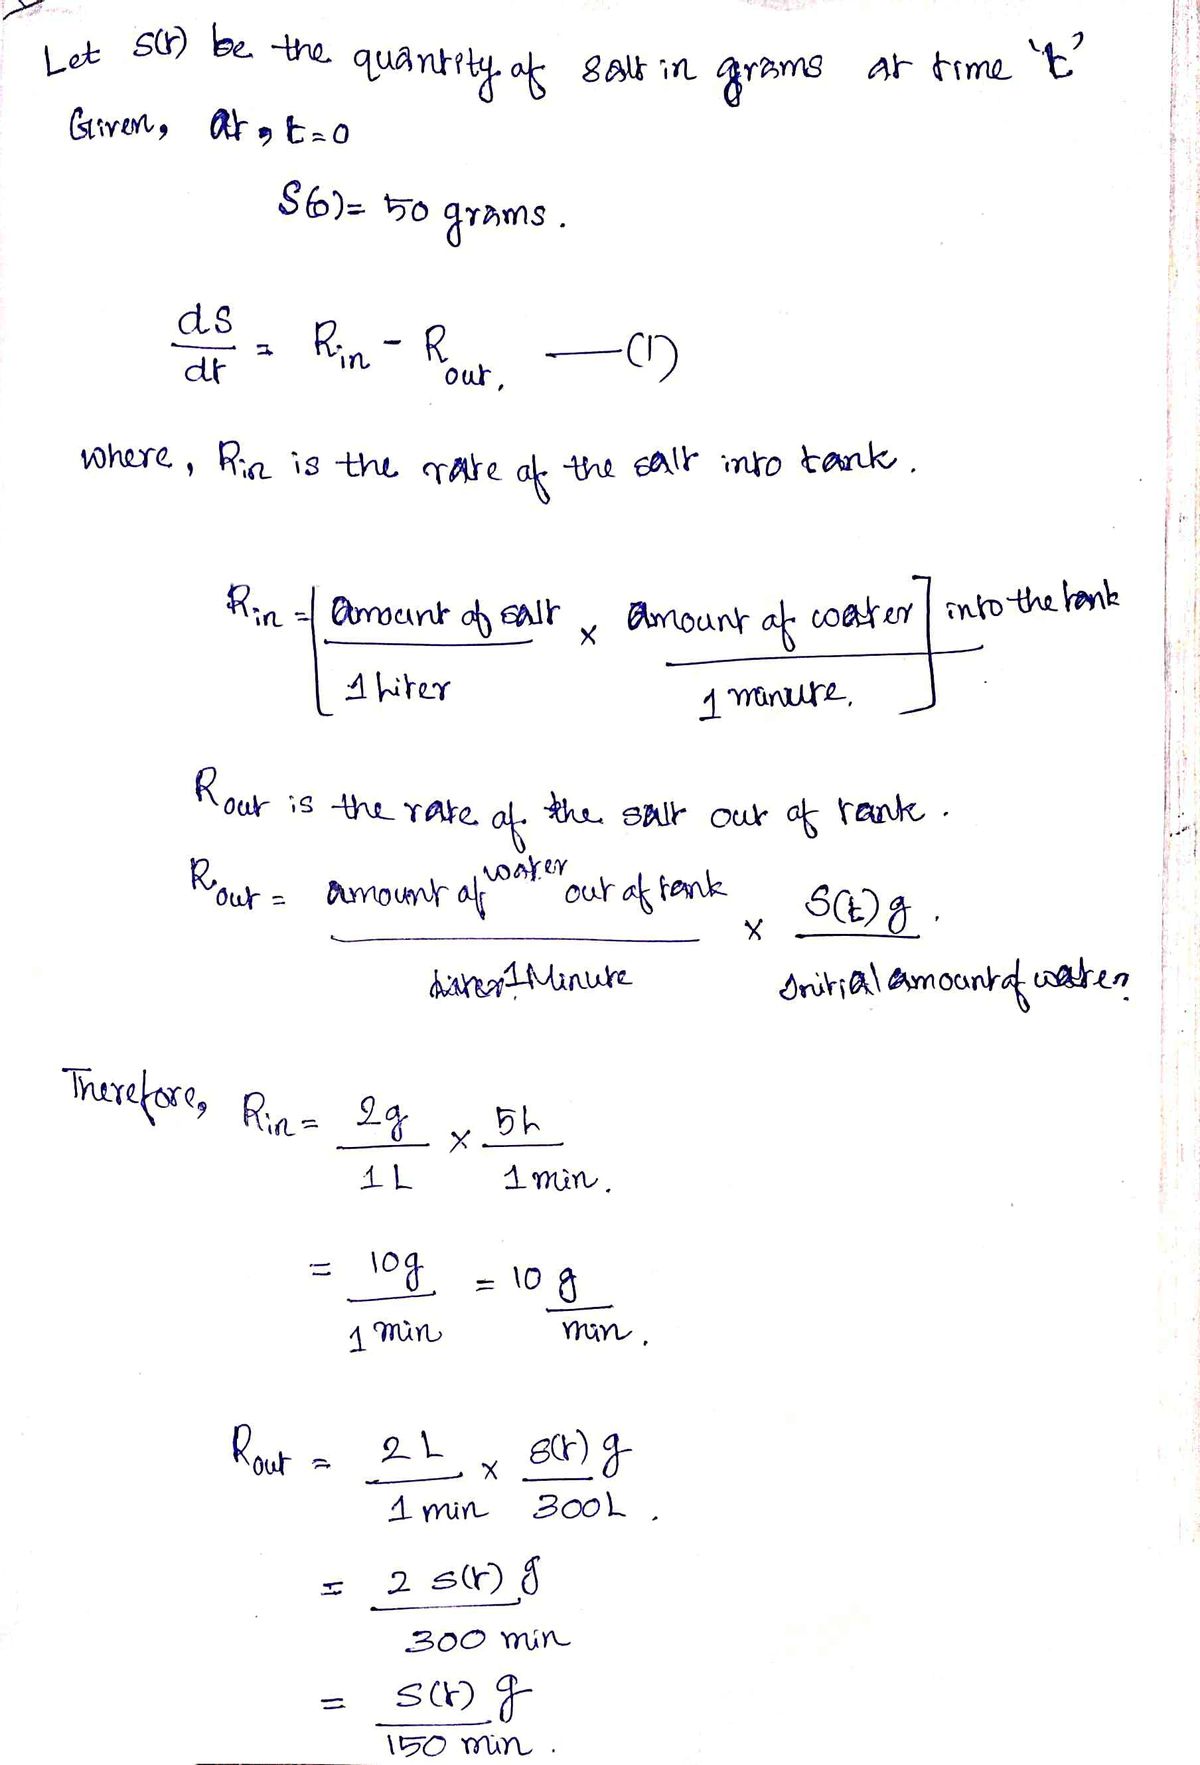 Let S(t) be the quantity of salt in grams at time 't'
Given, at, t=0
S(0)= 50 grams.
dS/dt = Rin - Rout, —(1)
where, Rin is the rate of the salt into tank.
Rin = [amount of salt/1 liter × amount of water/1 minute.] into the tank
Rout is the rate of the salt out of tank.
Rout = amount of water out of tank/1 Minute × S(t)g/Initial amount of water.
Therefore, Rin = 2g/1L × 5L/1min.
= 10g/1min = 10 g/min.
Rout = 2L/1min × S(t)g/300L.
= 2 S(t) g/300 min
= S(t) g/150 min.